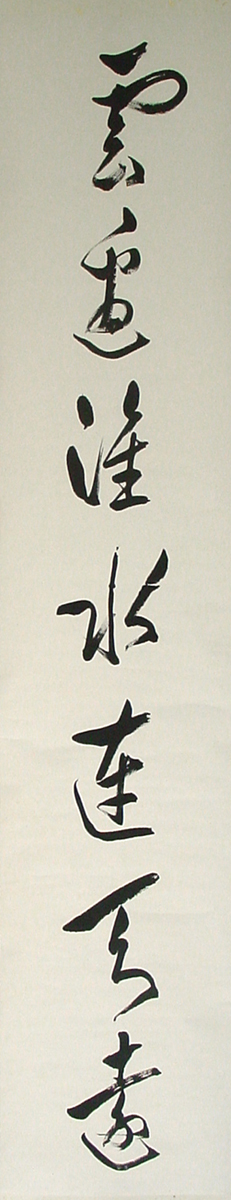 雲邊淮水連天遠